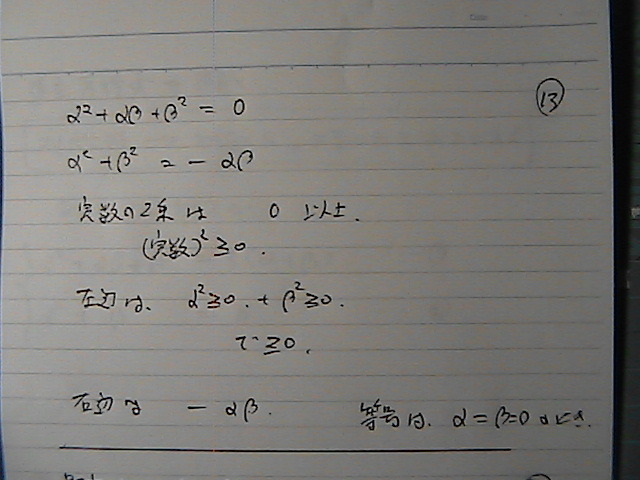 ⑬
α²+αβ+β² = 0
α²+β² = - αβ
実数の2乗は 0 以上.
(実数)² ≧0.
左辺は、 α²≧0. + β²≧0.
で ≧0.
右辺は - αβ. 等号は、α=β=0 のとき.